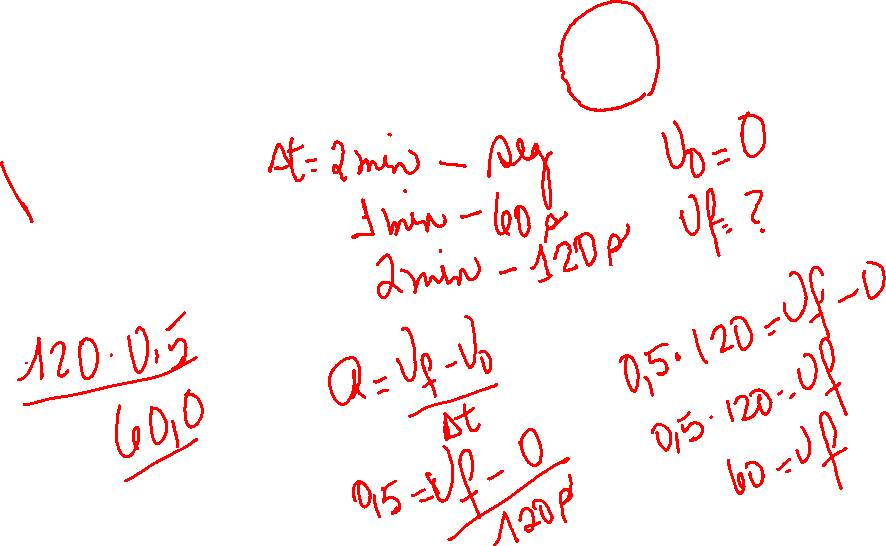 Δt = 2 min - seg
1 min - 60 s
2 min - 120 s
V0 = 0
Vf = ?
120 . 0,5
60,0
a = Vf - V0
Δt
0,5 = Vf - 0
120 s
0,5 . 120 = Vf - 0
0,5 . 120 = Vf
60 = Vf